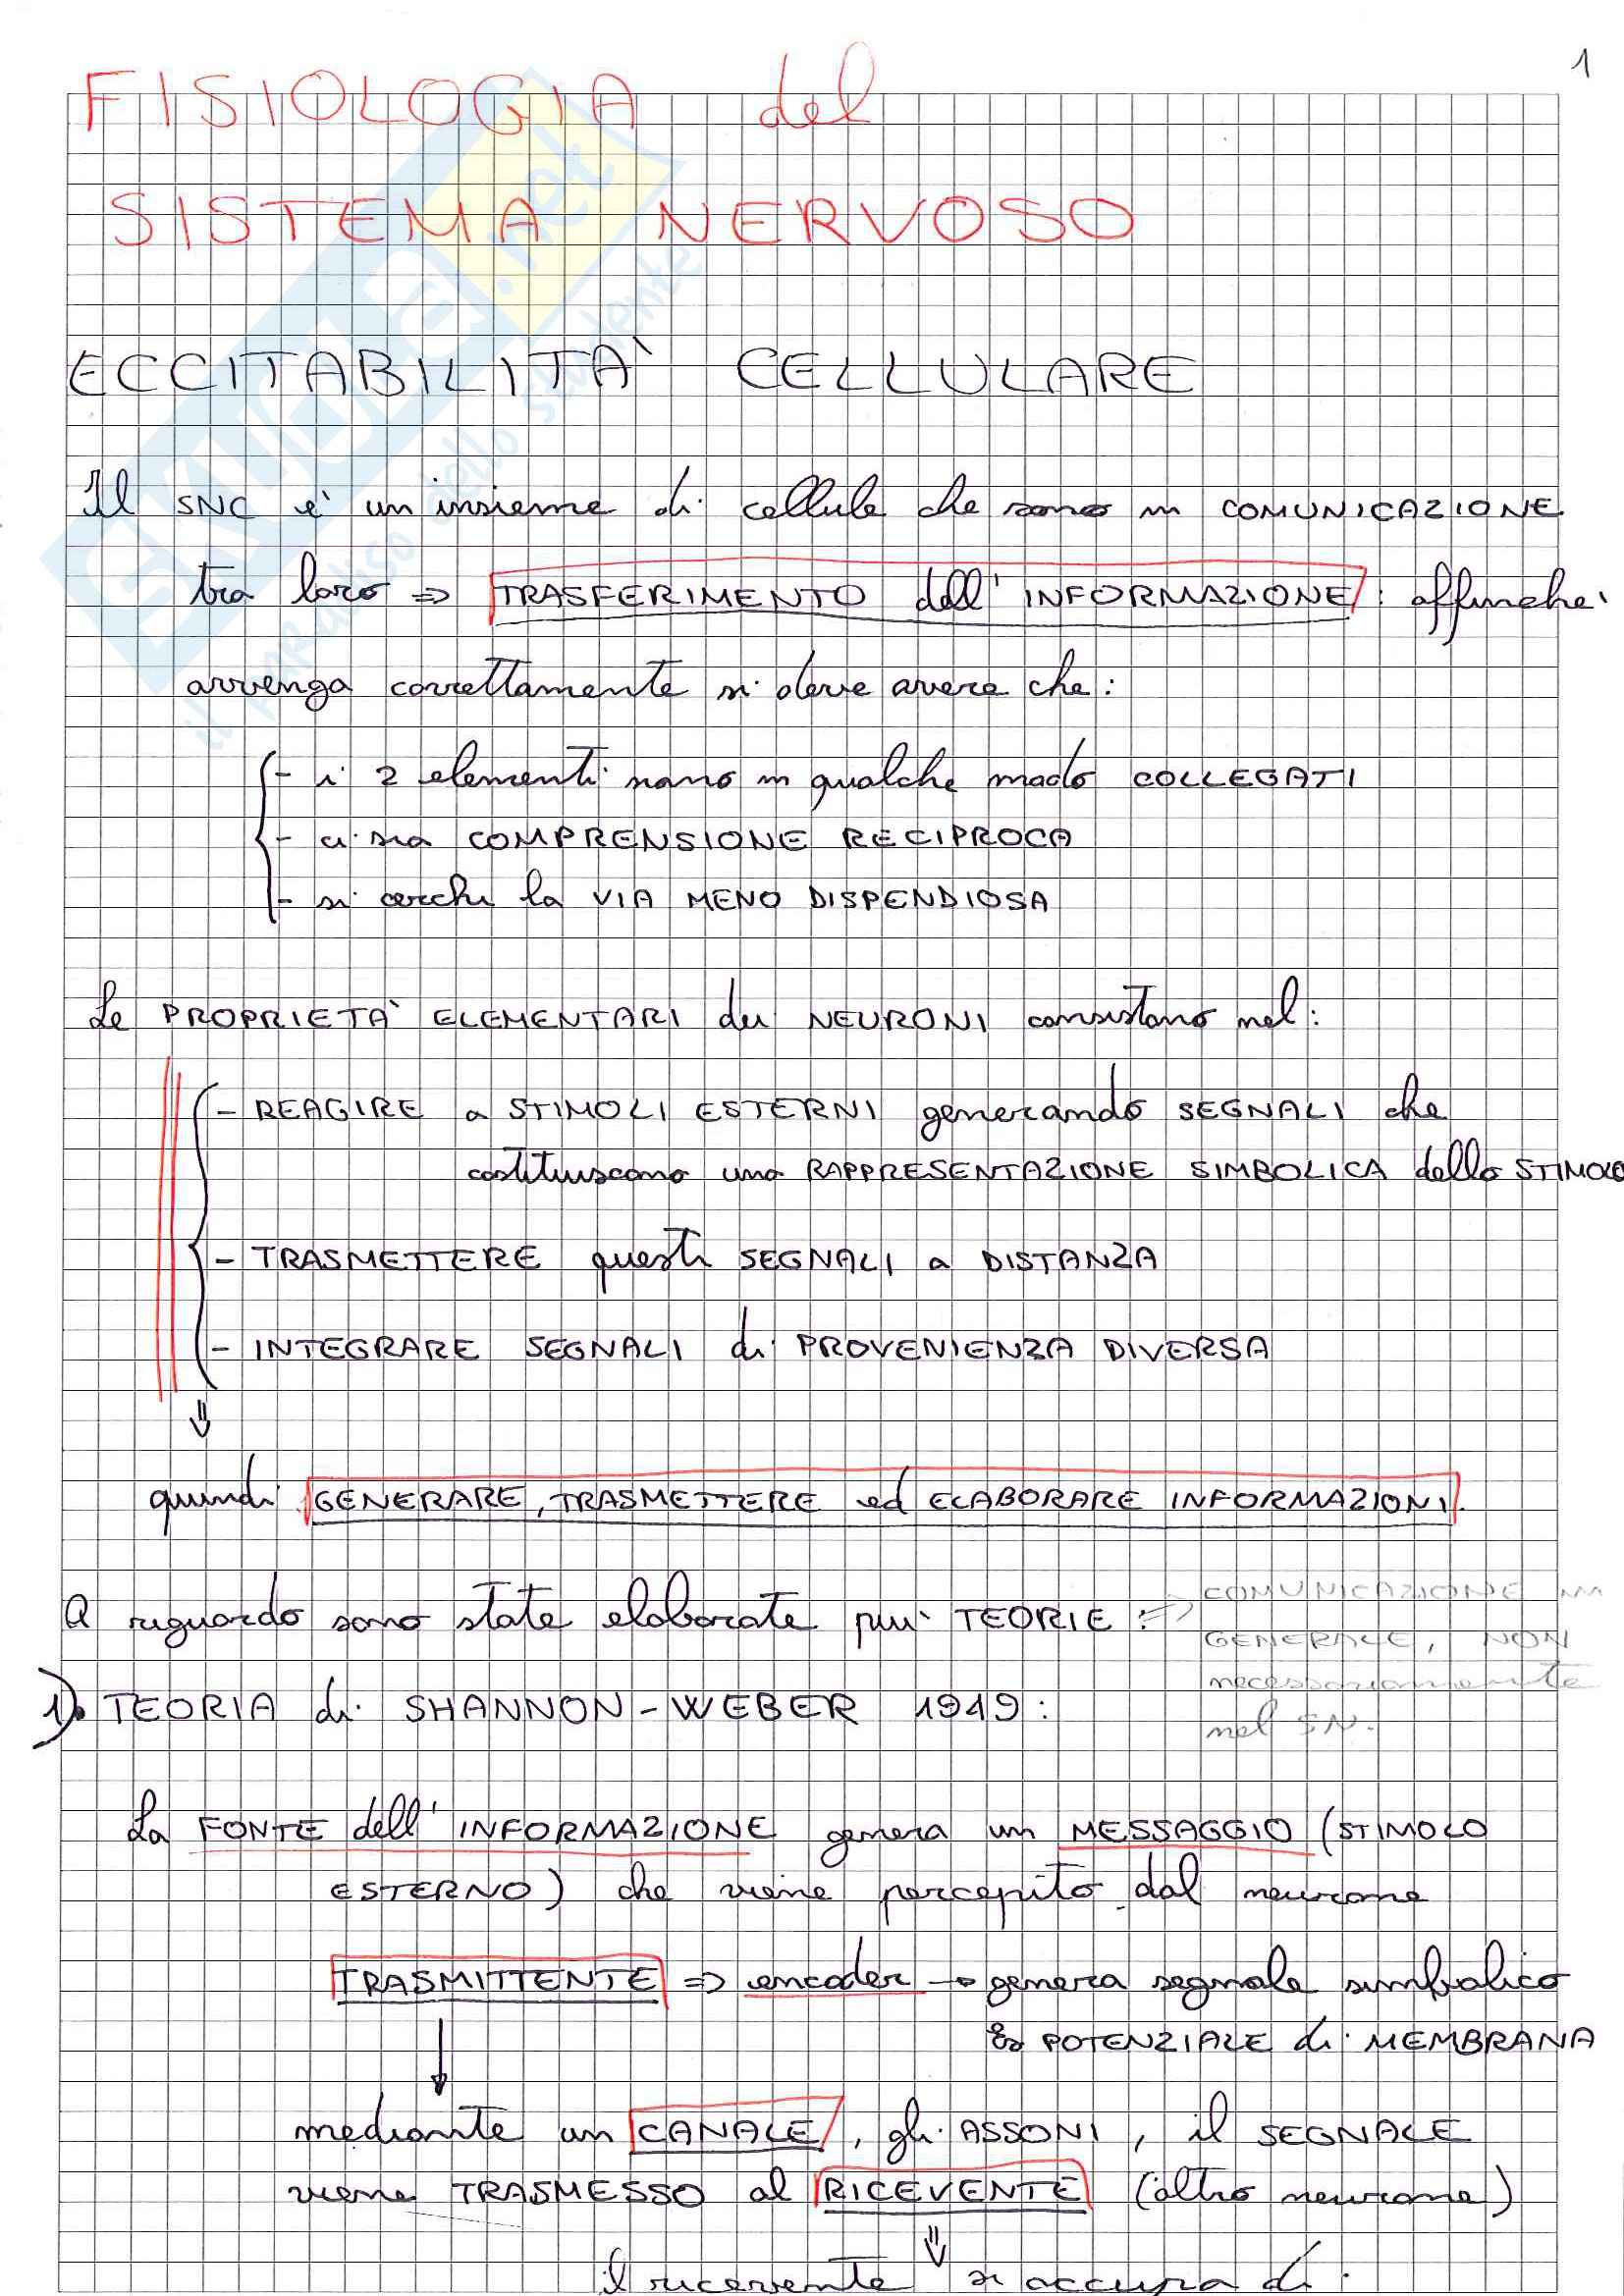 1
FISIOLOGIA del
SISTEMA NERVOSO
ECCITABILITA' CELLULARE
Il SNC è un insieme di cellule che sono in COMUNICAZIONE
tra loro => TRASFERIMENTO dell'INFORMAZIONE : affinche'
avvenga correttamente si deve avere che:
- i 2 elementi siano in qualche modo COLLEGATI
- ci sia COMPRENSIONE RECIPROCA
- si cerchi la VIA MENO DISPENDIOSA
Le PROPRIETA' ELEMENTARI dei NEURONI consistono nel:
- REAGIRE a STIMOLI ESTERNI generando SEGNALI che
costituiscono una RAPPRESENTAZIONE SIMBOLICA dello STIMOLO
- TRASMETTERE questi SEGNALI a DISTANZA
- INTEGRARE SEGNALI di PROVENIENZA DIVERSA
⇓
quindi GENERARE, TRASMETTERE ed ELABORARE INFORMAZIONI.
A riguardo sono state elaborate più TEORIE : => COMUNICAZIONE in
GENERALE, NON
necessariamente
nel SN.
1) TEORIA di SHANNON-WEBER 1949:
La FONTE dell'INFORMAZIONE genera un MESSAGGIO (STIMOLO
ESTERNO) che viene percepito dal neurone
TRASMITTENTE => encoder → genera segnale simbolico
Es POTENZIALE di MEMBRANA
↓
mediante un CANALE, gli ASSONI, il SEGNALE
viene TRASMESSO al RICEVENTE (altro neurone)
⇓
Il ricevente si occupa di:
SKUOLA.net
il paradiso dello studente